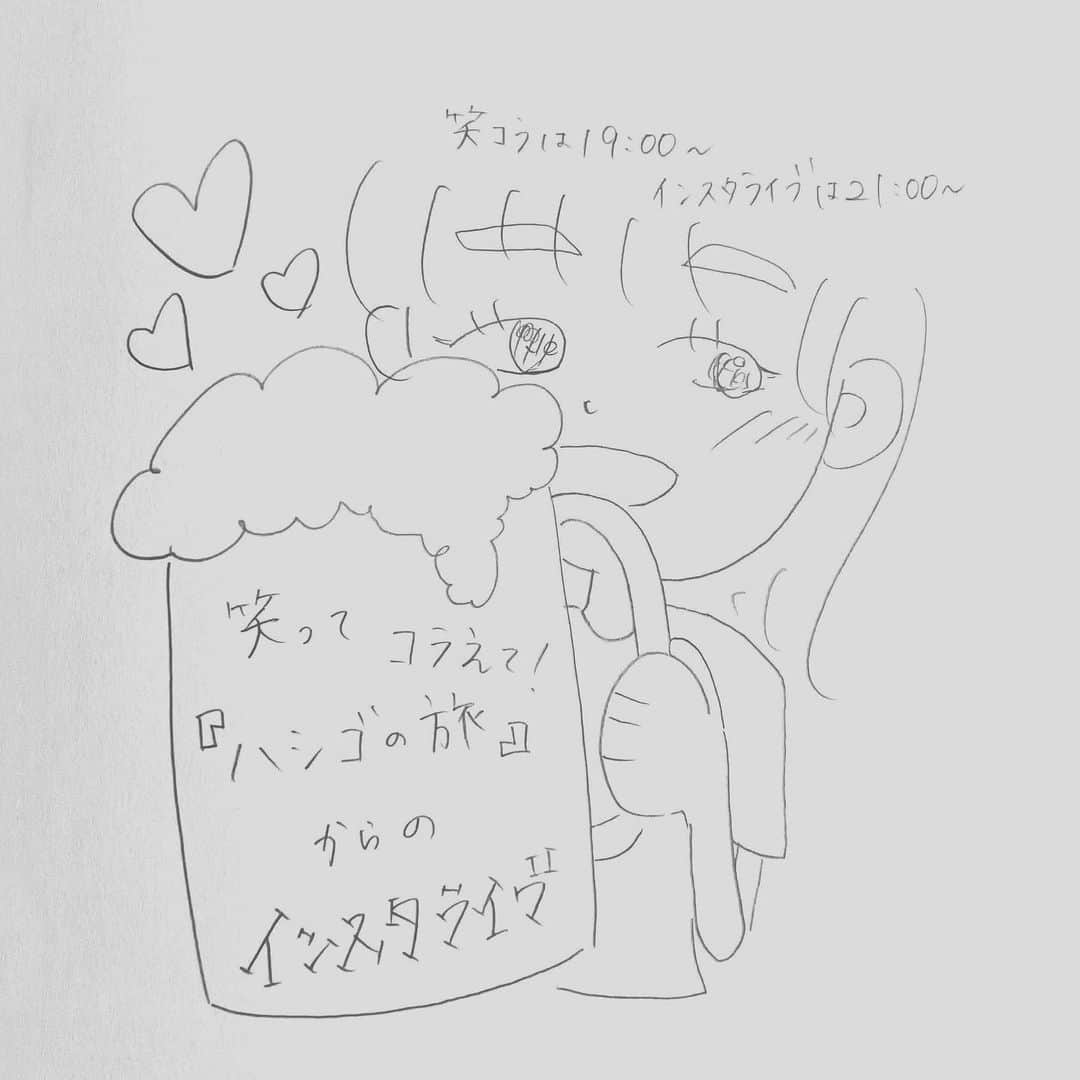 笑コラは19:00～
インスタライブは21:00～
笑って コラえて!
『ハシゴの旅』
からの
インスタライブ